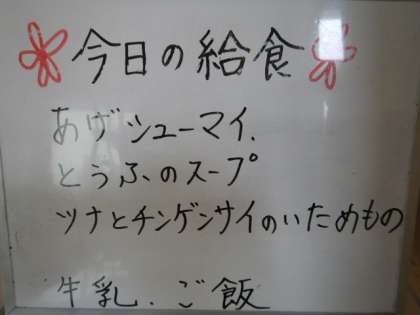 今日の給食
あげシューマイ.
とうふのスープ
ツナとチンゲンサイのいためもの
牛乳.ご飯